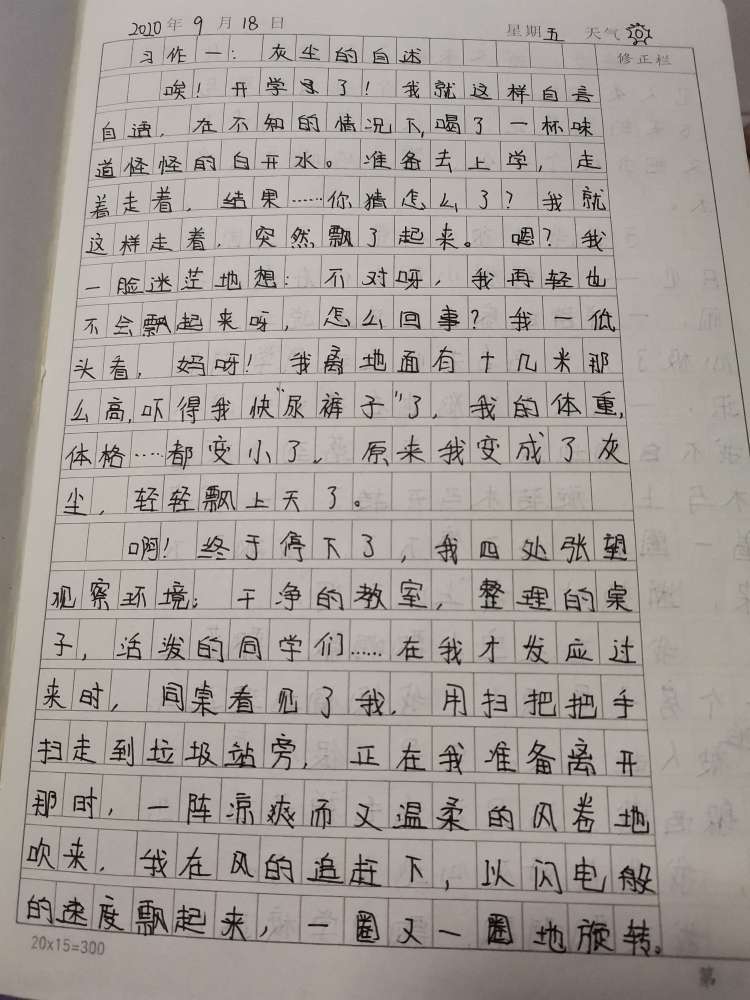 2020年9月18日 星期五 天气
习作一:灰尘的自述 修正栏
唉!开学了!我就这样自言
自语,在不知的情况下,喝了一杯味
道怪怪的白开水。准备去上学,走
着走着,结果……你猜怎么了?我就
这样走着,突然飘了起来。嗯?我
一脸迷茫地想:不对呀,我再轻也
不会飘起来呀,怎么回事?我一低
头看,妈呀!我离地面有十几米那
么高,吓得我快“尿裤子”了,我的体重,
体格……都变小了,原来我变成了灰
尘,轻轻飘上天了。
啊!终于停下了,我四处张望
观察环境:干净的教室,整理的桌
子,活泼的同学们……在我才发应过
来时,同桌看见了我,用扫把把手
扫走到垃圾站旁,正在我准备离开
那时,一阵凉爽而又温柔的风卷地
吹来,我在风的追赶下,以闪电般
的速度飘起来,一圈又一圈地旋转。
20×15=300 第